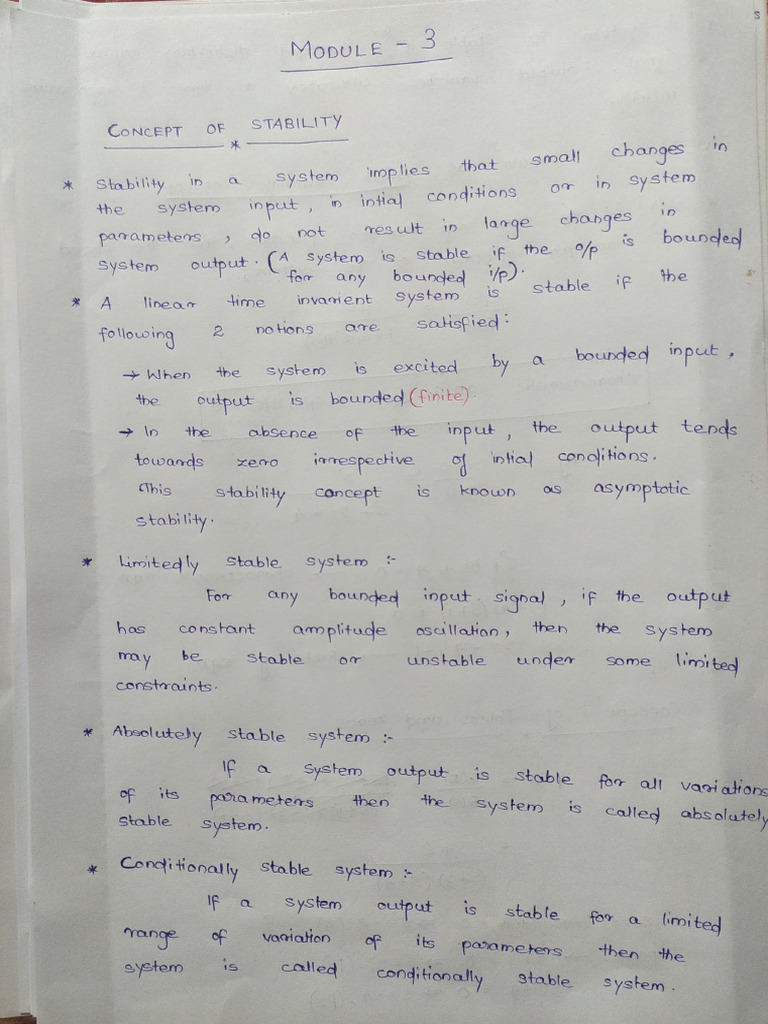 S
MODULE - 3
CONCEPT OF STABILITY
*
* Stability in a system implies that small changes in
the system input, in intial conditions or in system
parameters, do not result in large changes in
system output. (A system is stable if the o/p is bounded
for any bounded i/p).
* A linear time invarient system is stable if the
following 2 notions are satisfied:
→ When the system is excited by a bounded input,
the output is bounded (finite).
→ In the absence of the input, the output tends
towards zero irrespective of intial conditions.
This stability concept is known as asymptotic
stability.
* Limitedly stable system :-
For any bounded input signal, if the output
has constant amplitude oscillation, then the system
may be stable or unstable under some limited
constraints.
* Absolutely stable system :-
If a system output is stable for all variations
of its parameters then the system is called absolutely
stable system.
* Conditionally stable system :-
If a system output is stable for a limited
range of variation of its parameters then the
system is called conditionally stable system.